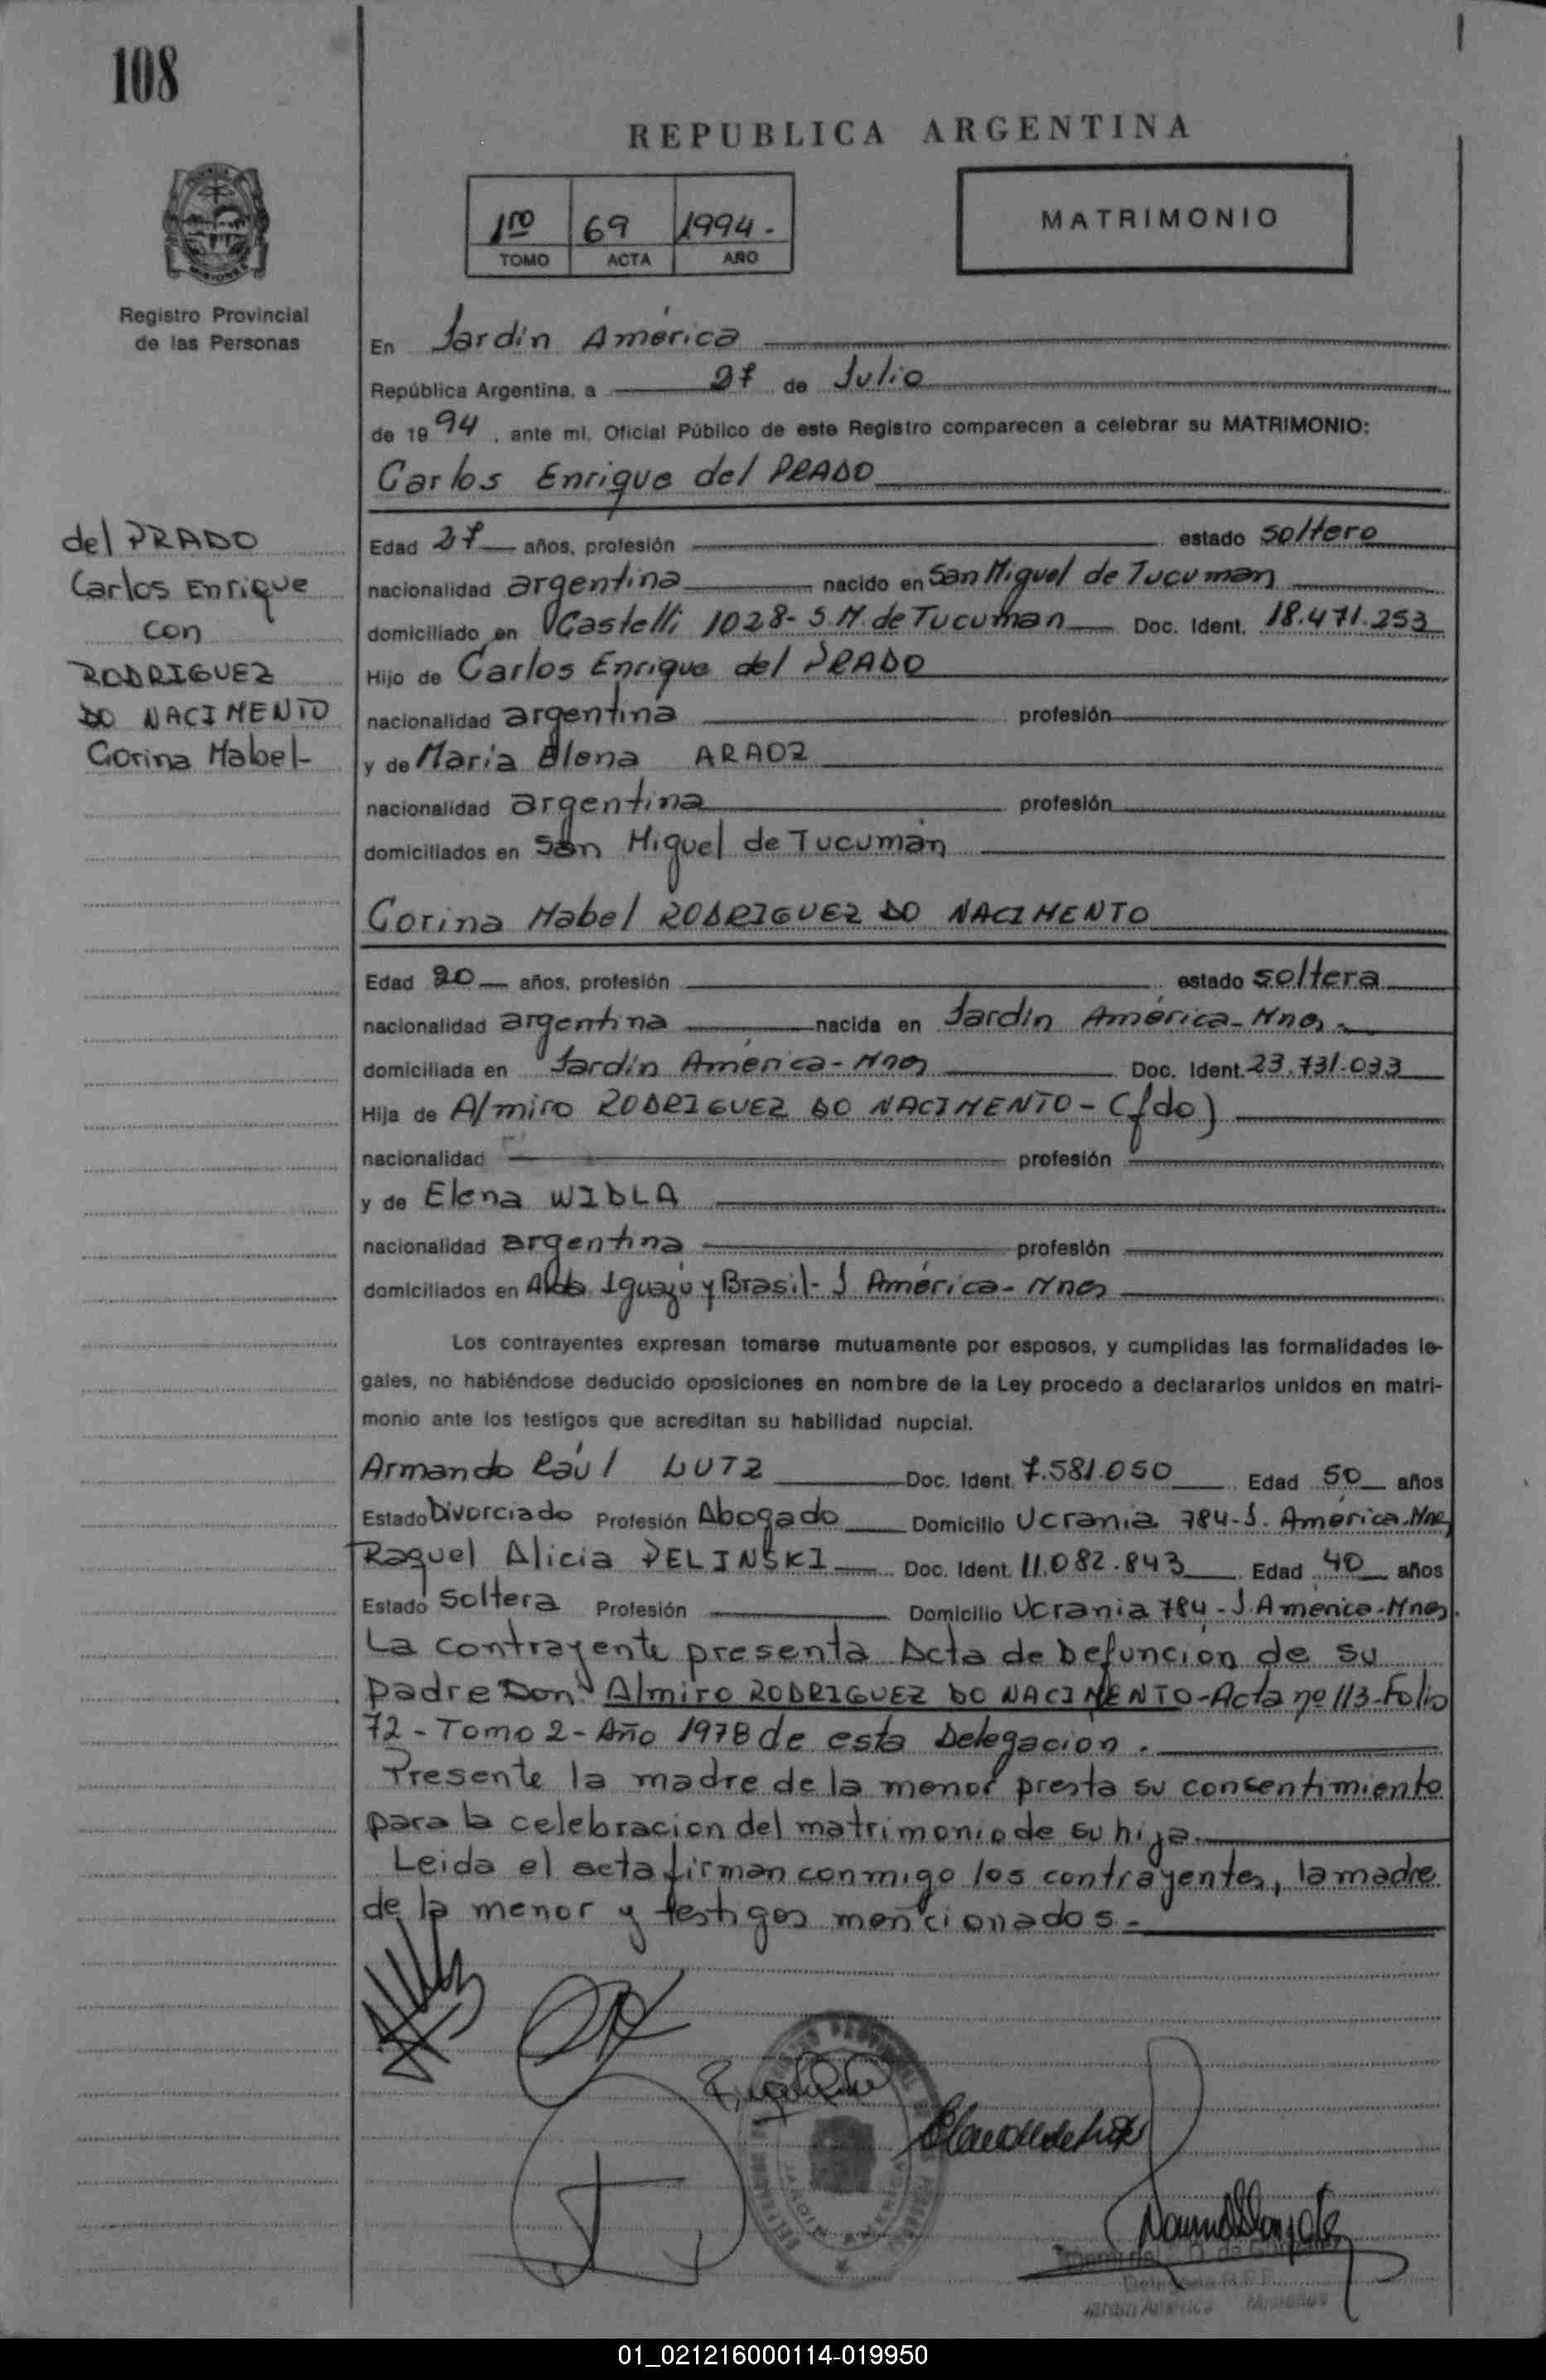 108
REPUBLICA ARGENTINA
1ro 69 1994.-
TOMO ACTA AÑO
MATRIMONIO
Registro Provincial
de las Personas
En Jardín América
República Argentina, a 27 de Julio
de 1994, ante mí, Oficial Público de este Registro comparecen a celebrar su MATRIMONIO:
Carlos Enrique del PRADO
del PRADO
Carlos Enrique
con
RODRIGUEZ
DO NACIMENTO
Corina Mabel-
Edad 27 años, profesión estado soltero
nacionalidad argentina nacido en San Miguel de Tucuman
domiciliado en Castelli 1028- S.M. de Tucuman Doc. Ident. 18.471.253
Hijo de Carlos Enrique del PRADO
nacionalidad argentina profesión
y de María Elena ARAOZ
nacionalidad argentina profesión
domiciliados en San Miguel de Tucumán
Corina Mabel RODRIGUEZ DO NACIMENTO
Edad 20 años, profesión estado soltera
nacionalidad argentina nacida en Jardín América-Mnes.-
domiciliada en Jardín América-Mnes Doc. Ident. 23.731.033
Hija de Almiro RODRIGUEZ DO NACIMENTO-(fdo)
nacionalidad profesión
y de Elena WIDLA
nacionalidad argentina profesión
domiciliados en Iguazú y Brasil- J. América-Mnes
Los contrayentes expresan tomarse mutuamente por esposos, y cumplidas las formalidades le-
gales, no habiéndose deducido oposiciones en nombre de la Ley procedo a declararlos unidos en matri-
monio ante los testigos que acreditan su habilidad nupcial.
Armando Raúl LUTZ Doc. Ident. 7.581.050 Edad 50 años
Estado Divorciado Profesión Abogado Domicilio Ucrania 784-J. América-Mnes
Raquel Alicia PELINSKI Doc. Ident. 11.082.843 Edad 40 años
Estado Soltera Profesión Domicilio Ucrania 784-J. América-Mnes.
La contrayente presenta Acta de Defunción de su
padre Don Almiro RODRIGUEZ DO NACIMENTO-Acta nº 113-Folio
72-Tomo 2-Año 1978 de esta Delegacion.
Presente la madre de la menor presta su consentimiento
para la celebracion del matrimonio de su hija.
Leida el acta firman conmigo los contrayentes, la madre
de la menor y testigos mencionados.-
Jardín América Misiones
01_021216000114-019950